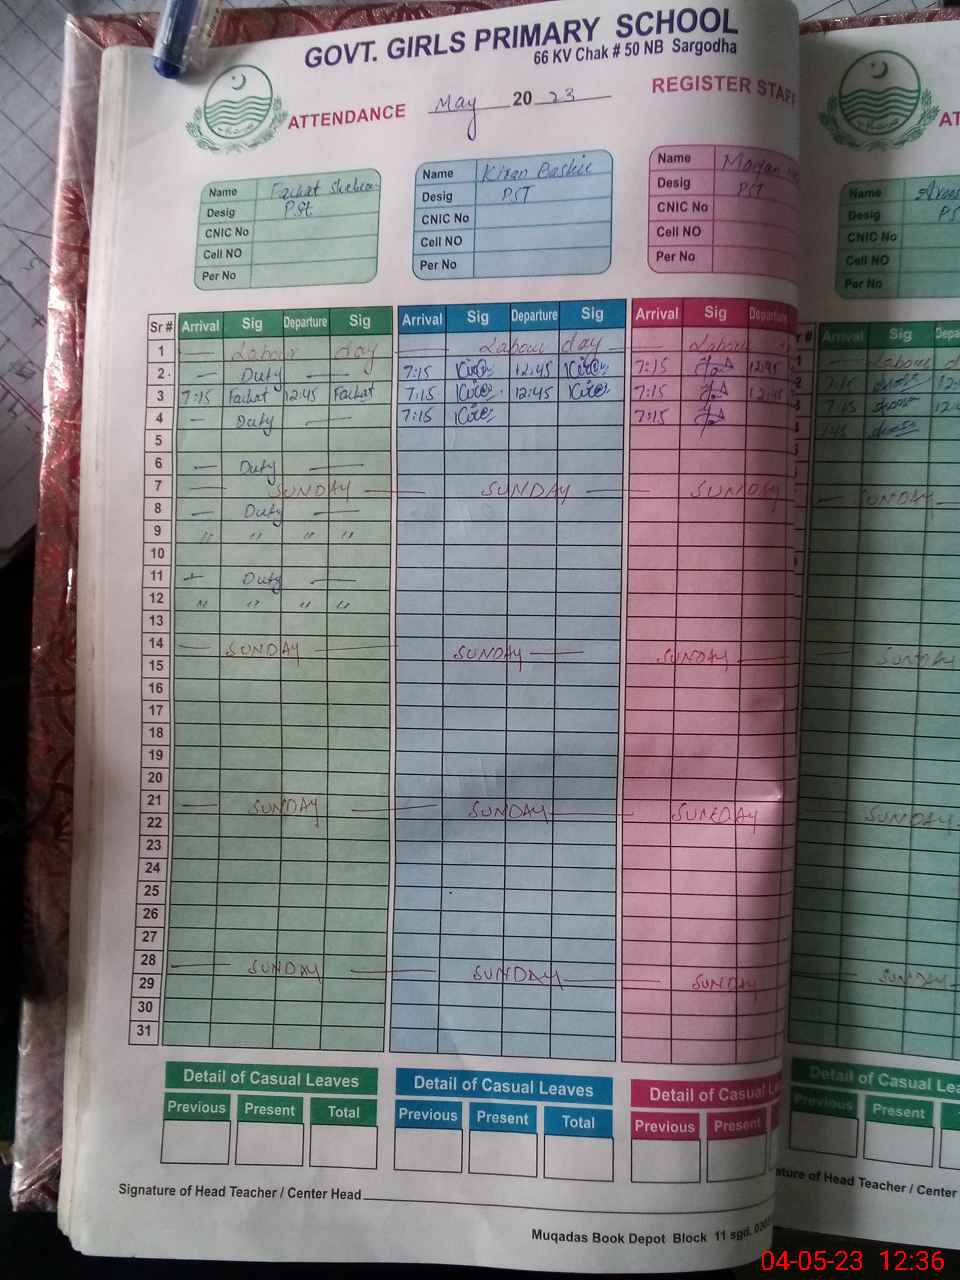 GOVT. GIRLS PRIMARY SCHOOL
66 KV Chak # 50 NB Sargodha
ATTENDANCE May 20 23 REGISTER STAFF
Name Farhat
Desig PST
CNIC No
Cell NO
Per No
Name Kiran
Desig PST
CNIC No
Cell NO
Per No
Name
Desig PST
CNIC No
Cell NO
Per No
Name
Desig
CNIC No
Cell NO
Per No
Sr # Arrival Sig Departure Sig Arrival Sig Departure Sig Arrival Sig Departure Arrival Sig
1 — Labour day — Labour day — Labour Labour
2 — Duty — 7:15 12:45 7:15 12:45 7:15
3 7:15 Farhat 12:45 Farhat 7:15 12:45 7:15 12:45 7:15
4 — Duty — 7:15 7:15
5
6 — Duty —
7 — SUNDAY — SUNDAY — SUNDAY — SUNDAY
8 — Duty —
9 " " " "
10
11 — Duty —
12 " " " "
13
14 — SUNDAY — SUNDAY — SUNDAY — SUNDAY
15
16
17
18
19
20
21 — SUNDAY — SUNDAY — SUNDAY — SUNDAY
22
23
24
25
26
27
28 — SUNDAY — SUNDAY — SUNDAY — SUNDAY
29
30
31
Detail of Casual Leaves Detail of Casual Leaves Detail of Casual Detail of Casual
Previous Present Total Previous Present Total Previous Present Previous Present
Signature of Head Teacher / Center Head
Head Teacher / Center
Muqadas Book Depot Block 11 sgd.
04-05-23 12:36